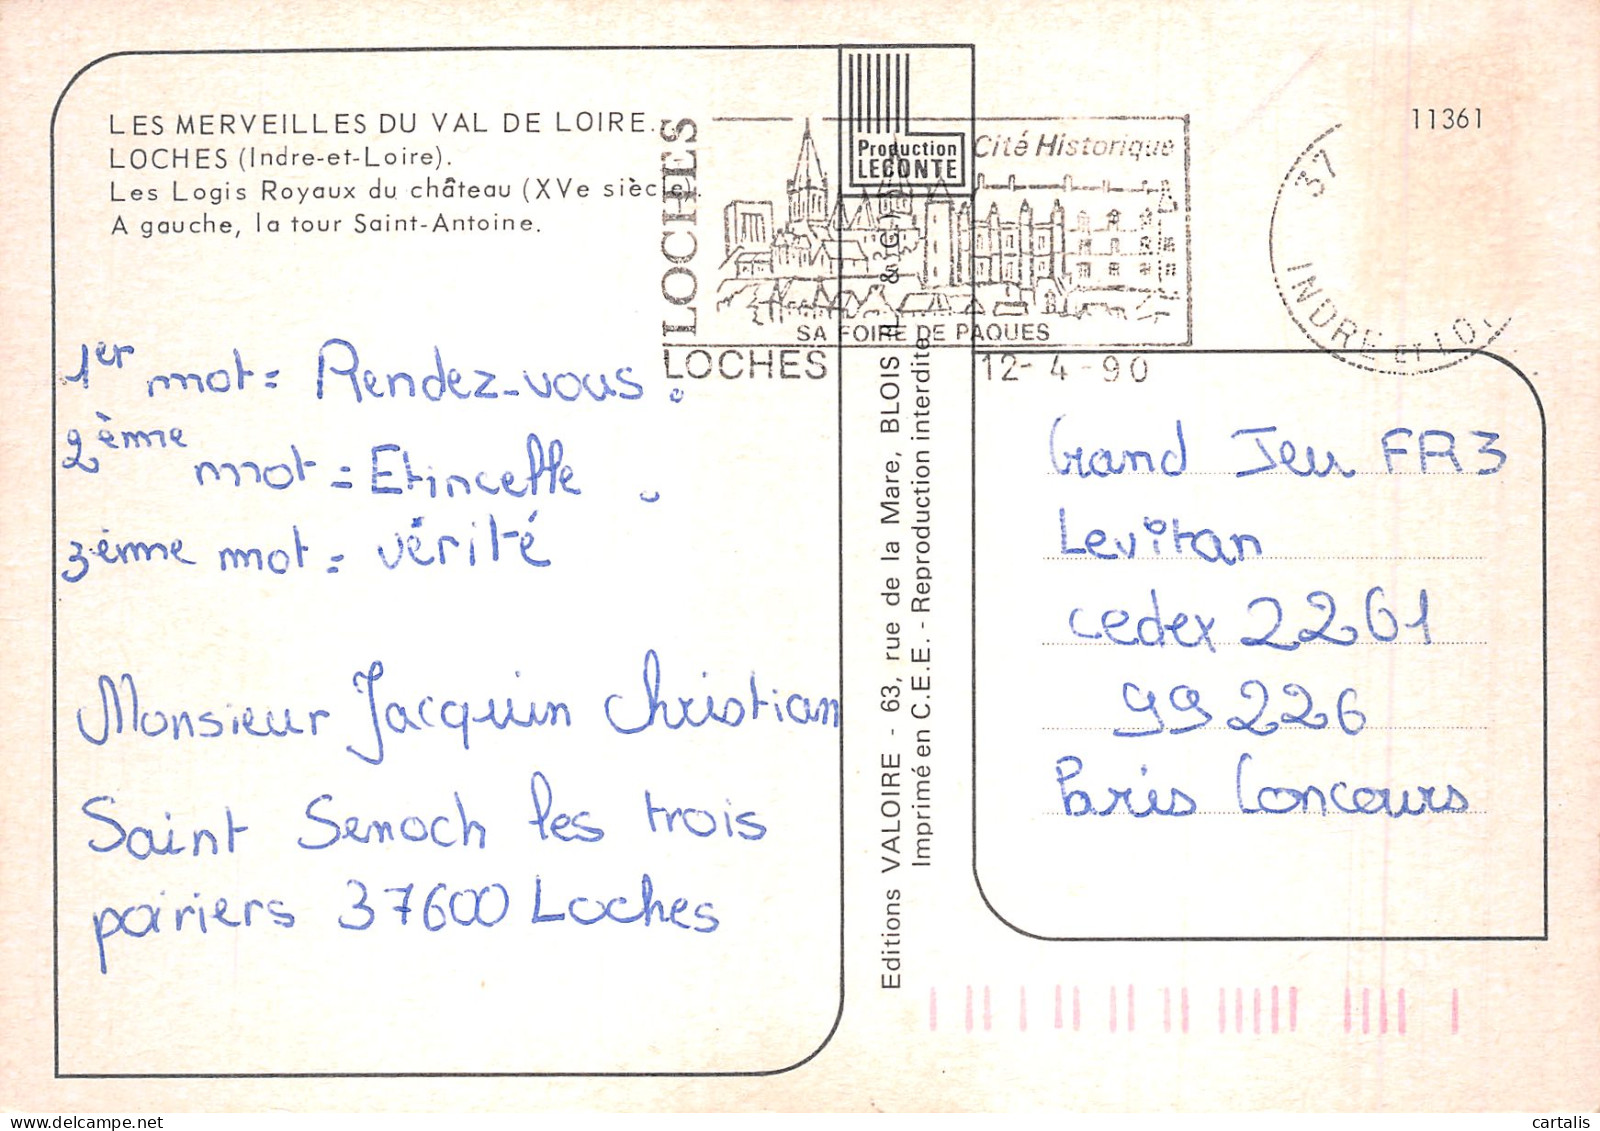 LES MERVEILLES DU VAL DE LOIRE.
LOCHES (Indre-et-Loire).
Les Logis Royaux du château (XVe siècle).
A gauche, la tour Saint-Antoine.
Production
LECONTE
LOCHES
Cité Historique
SA FOIRE DE PAQUES
LOCHES
12-4-90
37
INDRE ET LOI
11361
1er mot = Rendez-vous.
2ème mot = Etincelle.
3ème mot = vérité
Monsieur Jacquin Christian
Saint Senoch les trois
poiriers 37600 Loches
Editions VALOIRE - 63, rue de la Mare, BLOIS (H. & G.)
Imprimé en C.E.E. - Reproduction interdite
Grand Jeu FR3
Levitan
cedex 2261
99226
Paris Concours
cartalis
delcampe.net